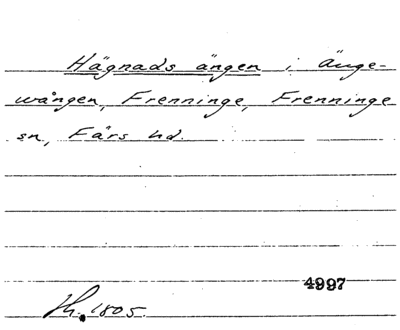 Hägnads ängen i änge-
wången, Frenninge, Frenninge
sn, Färs hd.
4997
Sk. 1805.